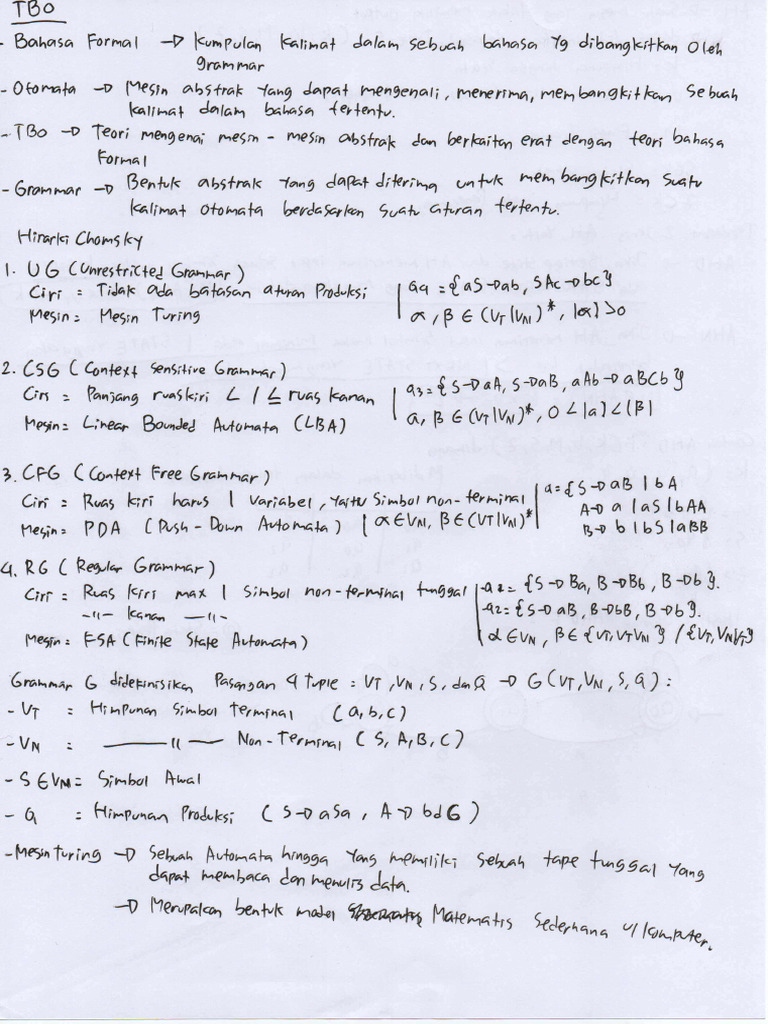 TBO
- Bahasa Formal → Kumpulan Kalimat dalam sebuah bahasa Yg dibangkitkan Oleh
grammar
- Otomata → Mesin abstrak yang dapat mengenali, menerima, membangkitkan sebuah
kalimat dalam bahasa tertentu.
- TBO → Teori mengenai mesin - mesin abstrak dan berkaitan erat dengan teori bahasa
Formal
- Grammar → Bentuk abstrak yang dapat diterima untuk membangkitkan suatu
kalimat otomata berdasarkan suatu aturan tertentu.
Hirarki Chomsky
1. UG (Unrestricted Grammar)
Ciri = Tidak ada batasan aturan Produksi | Q4 = {aS→ab, SAc→bc}
Mesin = Mesin Turing | α, β ∈ (VT|VN)*, |α|>0
2. CSG (Context Sensitive Grammar)
Ciri = Panjang ruas kiri < / ≤ ruas kanan | Q3 = {S→aA, S→aB, aAb→aBCb}
Mesin = Linear Bounded Automata (LBA) | α, β ∈ (VT|VN)*, 0<|α|<|β|
3. CFG (Context Free Grammar)
Ciri = Ruas kiri harus 1 variabel, yaitu simbol non-terminal | Q = {S→aB|bA
A→a|aS|bAA
Mesin = PDA (Push-Down Automata) | α∈VN, β∈(VT|VN)* | B→b|bS|aBB
4. RG (Regular Grammar)
Ciri = Ruas Kiri max 1 simbol non-terminal tunggal | Q1 = {S→Ba, B→Bb, B→b}.
-〃- kanan -〃- | Q2 = {S→aB, B→bB, B→b}.
Mesin = FSA (Finite State Automata) | α∈VN, β∈{VT,VTVN} / {VT,VNVT}
Grammar G didefinisikan Pasangan 4 tuple = VT, VN, S, dan Q → G(VT,VN,S,Q) :
- VT = Himpunan Simbol terminal (a,b,c)
- VN = —〃— Non-Terminal (S,A,B,C)
- S∈VN = Simbol Awal
- Q = Himpunan Produksi (S→aSa, A→bdG)
- Mesin Turing → Sebuah Automata hingga yang memiliki sebuah tape tunggal yang
dapat membaca dan menulis data.
→ Merupakan bentuk model Matematis Sederhana u/ komputer.